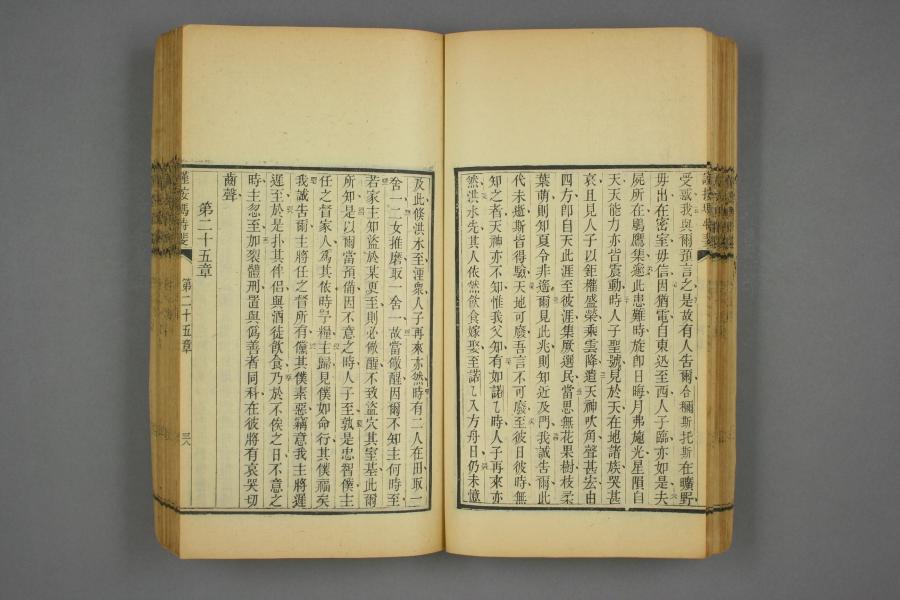 受惑我與爾預言之是故有人告爾合穪斯托斯在曠野
毋出在密室毋信因猶電自東廵至西人子臨亦如是夫
屍所在鵰鷹集邊此患難時旋卽日晦月弗施光星隕自
天天能力亦皆震動時人子聖號見於天在地諸族哭甚
哀且見人子以鉅權盛榮乘雲降遣天神吹角聲甚宏由
四方卽自天此涯至彼涯集厥選民當思無花果樹枝柔
葉萌則知夏令非遙爾見此兆則知近及門我誠吿爾此
代未逝斯皆得驗天地可廢吾言不可廢至彼日彼時無
知之者天神亦不知惟我父知有如諾乁時人子再來亦
然洪水先其人依然飲食嫁娶至諾乁入方舟日仍未憶
及此倏洪水至湮衆人子再來亦然時有二人在田取一
舍一二女推磨取一舍一故當儆醒因爾不知主何時至
若家主知盜於某更至則必儆醒不致盜穴其室基此爾
所知是以爾當預備因不意之時人子至孰是忠智僕主
任之督家人爲其依時予糧主歸見僕如命行其僕福矣
我誠吿爾主將任之督所有儻其僕素惡竊意我主將遲
遲至於是扑其伴侶與酒徒飲食乃於不俟之日不意之
時主忽至加裂體刑置與僞善者同科在彼將有哀哭切
齒聲
第二十五章
第二十五章
三八